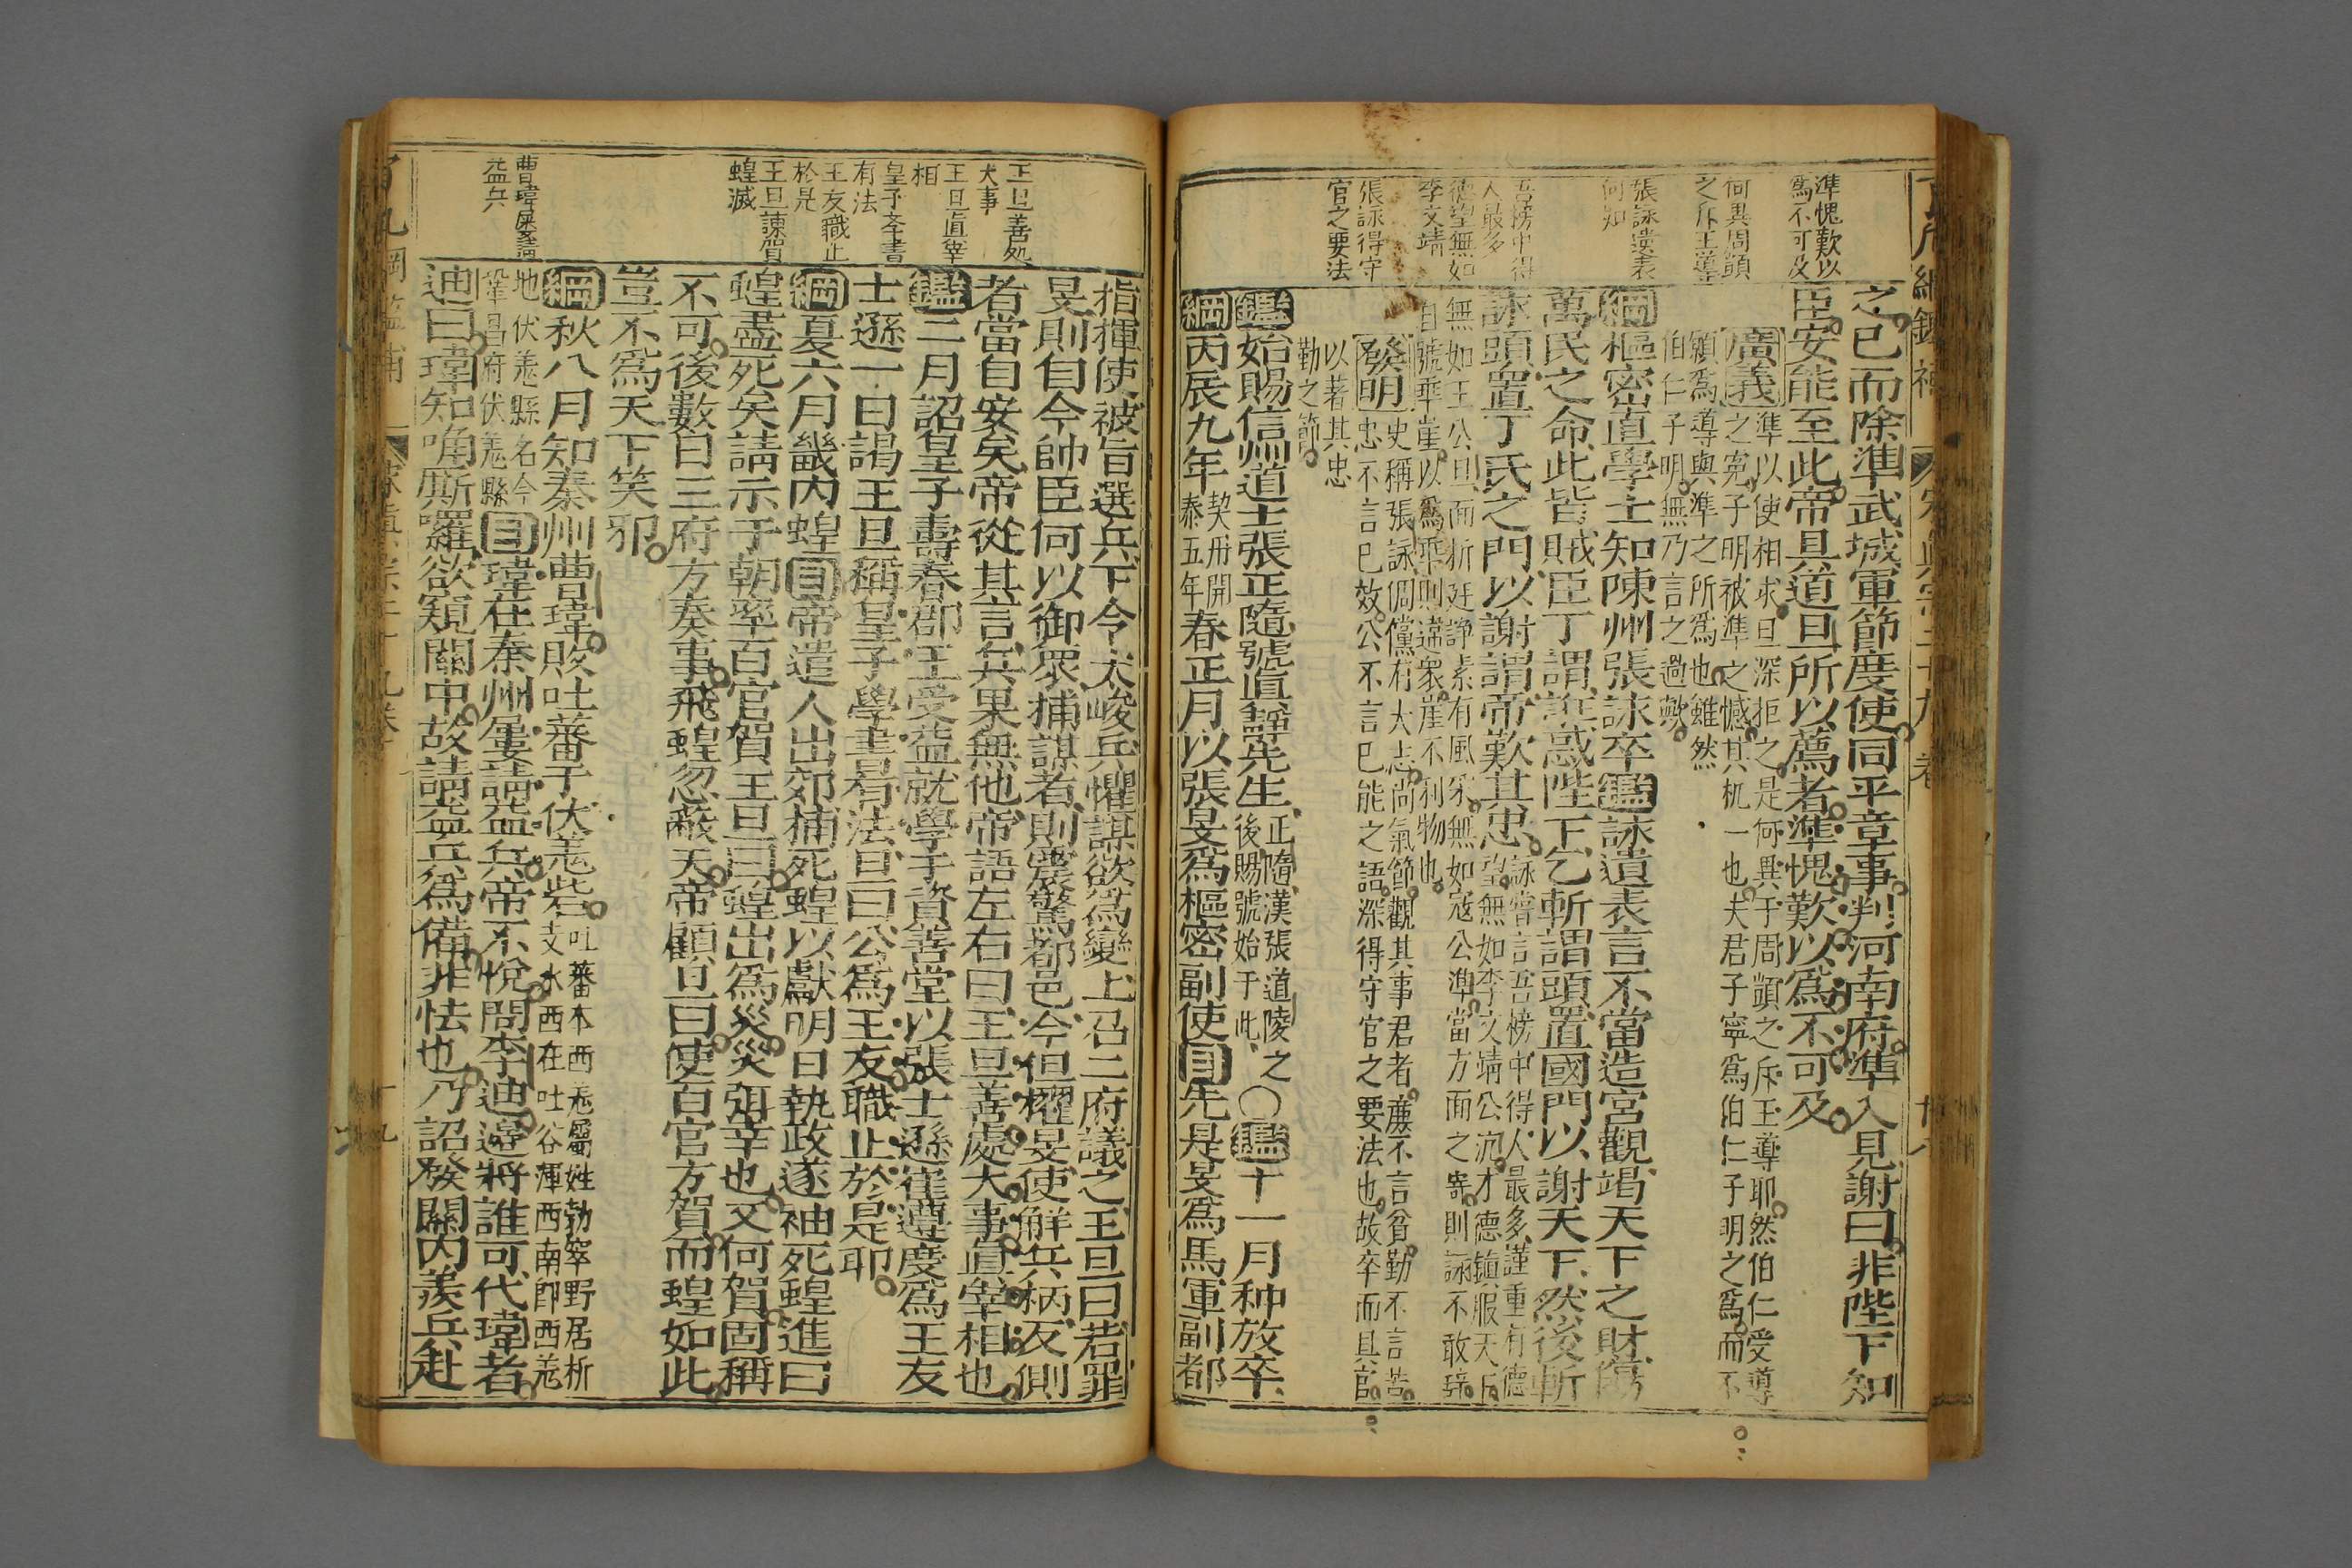 準愧歎以
為不可及
何異周顗
之斥王導
張詠遺表
何如
吾榜中得
人最多
德望無如
李文靖
張詠得守
官之要法
之已而除準武城軍節度使同平章事判河南府準入見謝曰非陛下知
臣安能至此帝具道旦所以薦者準愧歎以為不可及
廣義準以使相求旦深拒之是何異于周顗之斥王導耶然伯仁受導
之寃子明被準之憾其机一也夫君子寧為伯仁子明之為而不
願為導與準之所為也雖然
伯仁子明無乃言之過歟
綱樞密直學士知陳州張詠卒鑑詠遺表言不當造宮觀竭天下之財傷
萬民之命此皆賊臣丁謂誑惑陛下乞斬謂頭置國門以謝天下然後斬
詠頭置丁氏之門以謝謂帝歎其忠詠嘗言吾榜中得人最多謹重有德
望無如李文靖公沉才德鎮服天下
無如王公旦面折廷諍素有風采無如寇公準當方面之寄則詠不敢辭
自號乖崖以為乖則違衆崖不利物也
發明史稱張詠倜儻有大志尚氣節觀其事君者廉不言貧勤不言苦
忠不言已效公不言已能之語深得守官之要法也故卒而具官
以著其忠
勤之節
鑑始賜信州道士張正隨號眞靜先生正隨漢張道陵之
後賜號始于此〇鑑十一月种放卒
綱丙辰九年契丹開
泰五年春正月以張旻為樞密副使目先是旻為馬軍副都
王旦善処
大事
王旦眞宰
相
皇子孝書
有法
王友職止
於是
王旦諫賀
蝗滅
曹瑋屡請
益兵
指揮使被旨選兵下令太峻兵懼謀欲為變上召二府議之王旦曰若罪
旻則自今帥臣何以御衆捕謀者則震驚都邑今但擢旻使解兵柄反側
者當自安矣帝從其言兵果無他帝語左右曰王旦善處大事眞宰相也
鑑二月詔皇子壽春郡王受益就學于資善堂以張士遜崔遵度為王友
士遜一日謁王旦稱皇子學書有法旦曰公為王友職止於是耶
綱夏六月畿內蝗目帝遣人出郊捕死蝗以獻明日執政遂袖死蝗進曰
蝗盡死矣請示于朝率百官賀王旦曰蝗出為災災弭幸也又何賀固稱
不可後數日三府方奏事飛蝗忽蔽天帝顧旦曰使百官方賀而蝗如此
豈不為天下笑邪
綱秋八月知秦州曹瑋敗吐蕃于伏羗砦吐蕃本西羗屬姓勃窣野居析
支水西在吐谷渾西南卽西羗
地伏羗縣名今
鞏昌府伏羗縣目瑋在秦州屢請益兵帝不悅問李迪邊將誰可代瑋者
迪曰瑋知唃厮囉欲窺關中故請益兵為備非怯也乃詔發關內羨兵赴